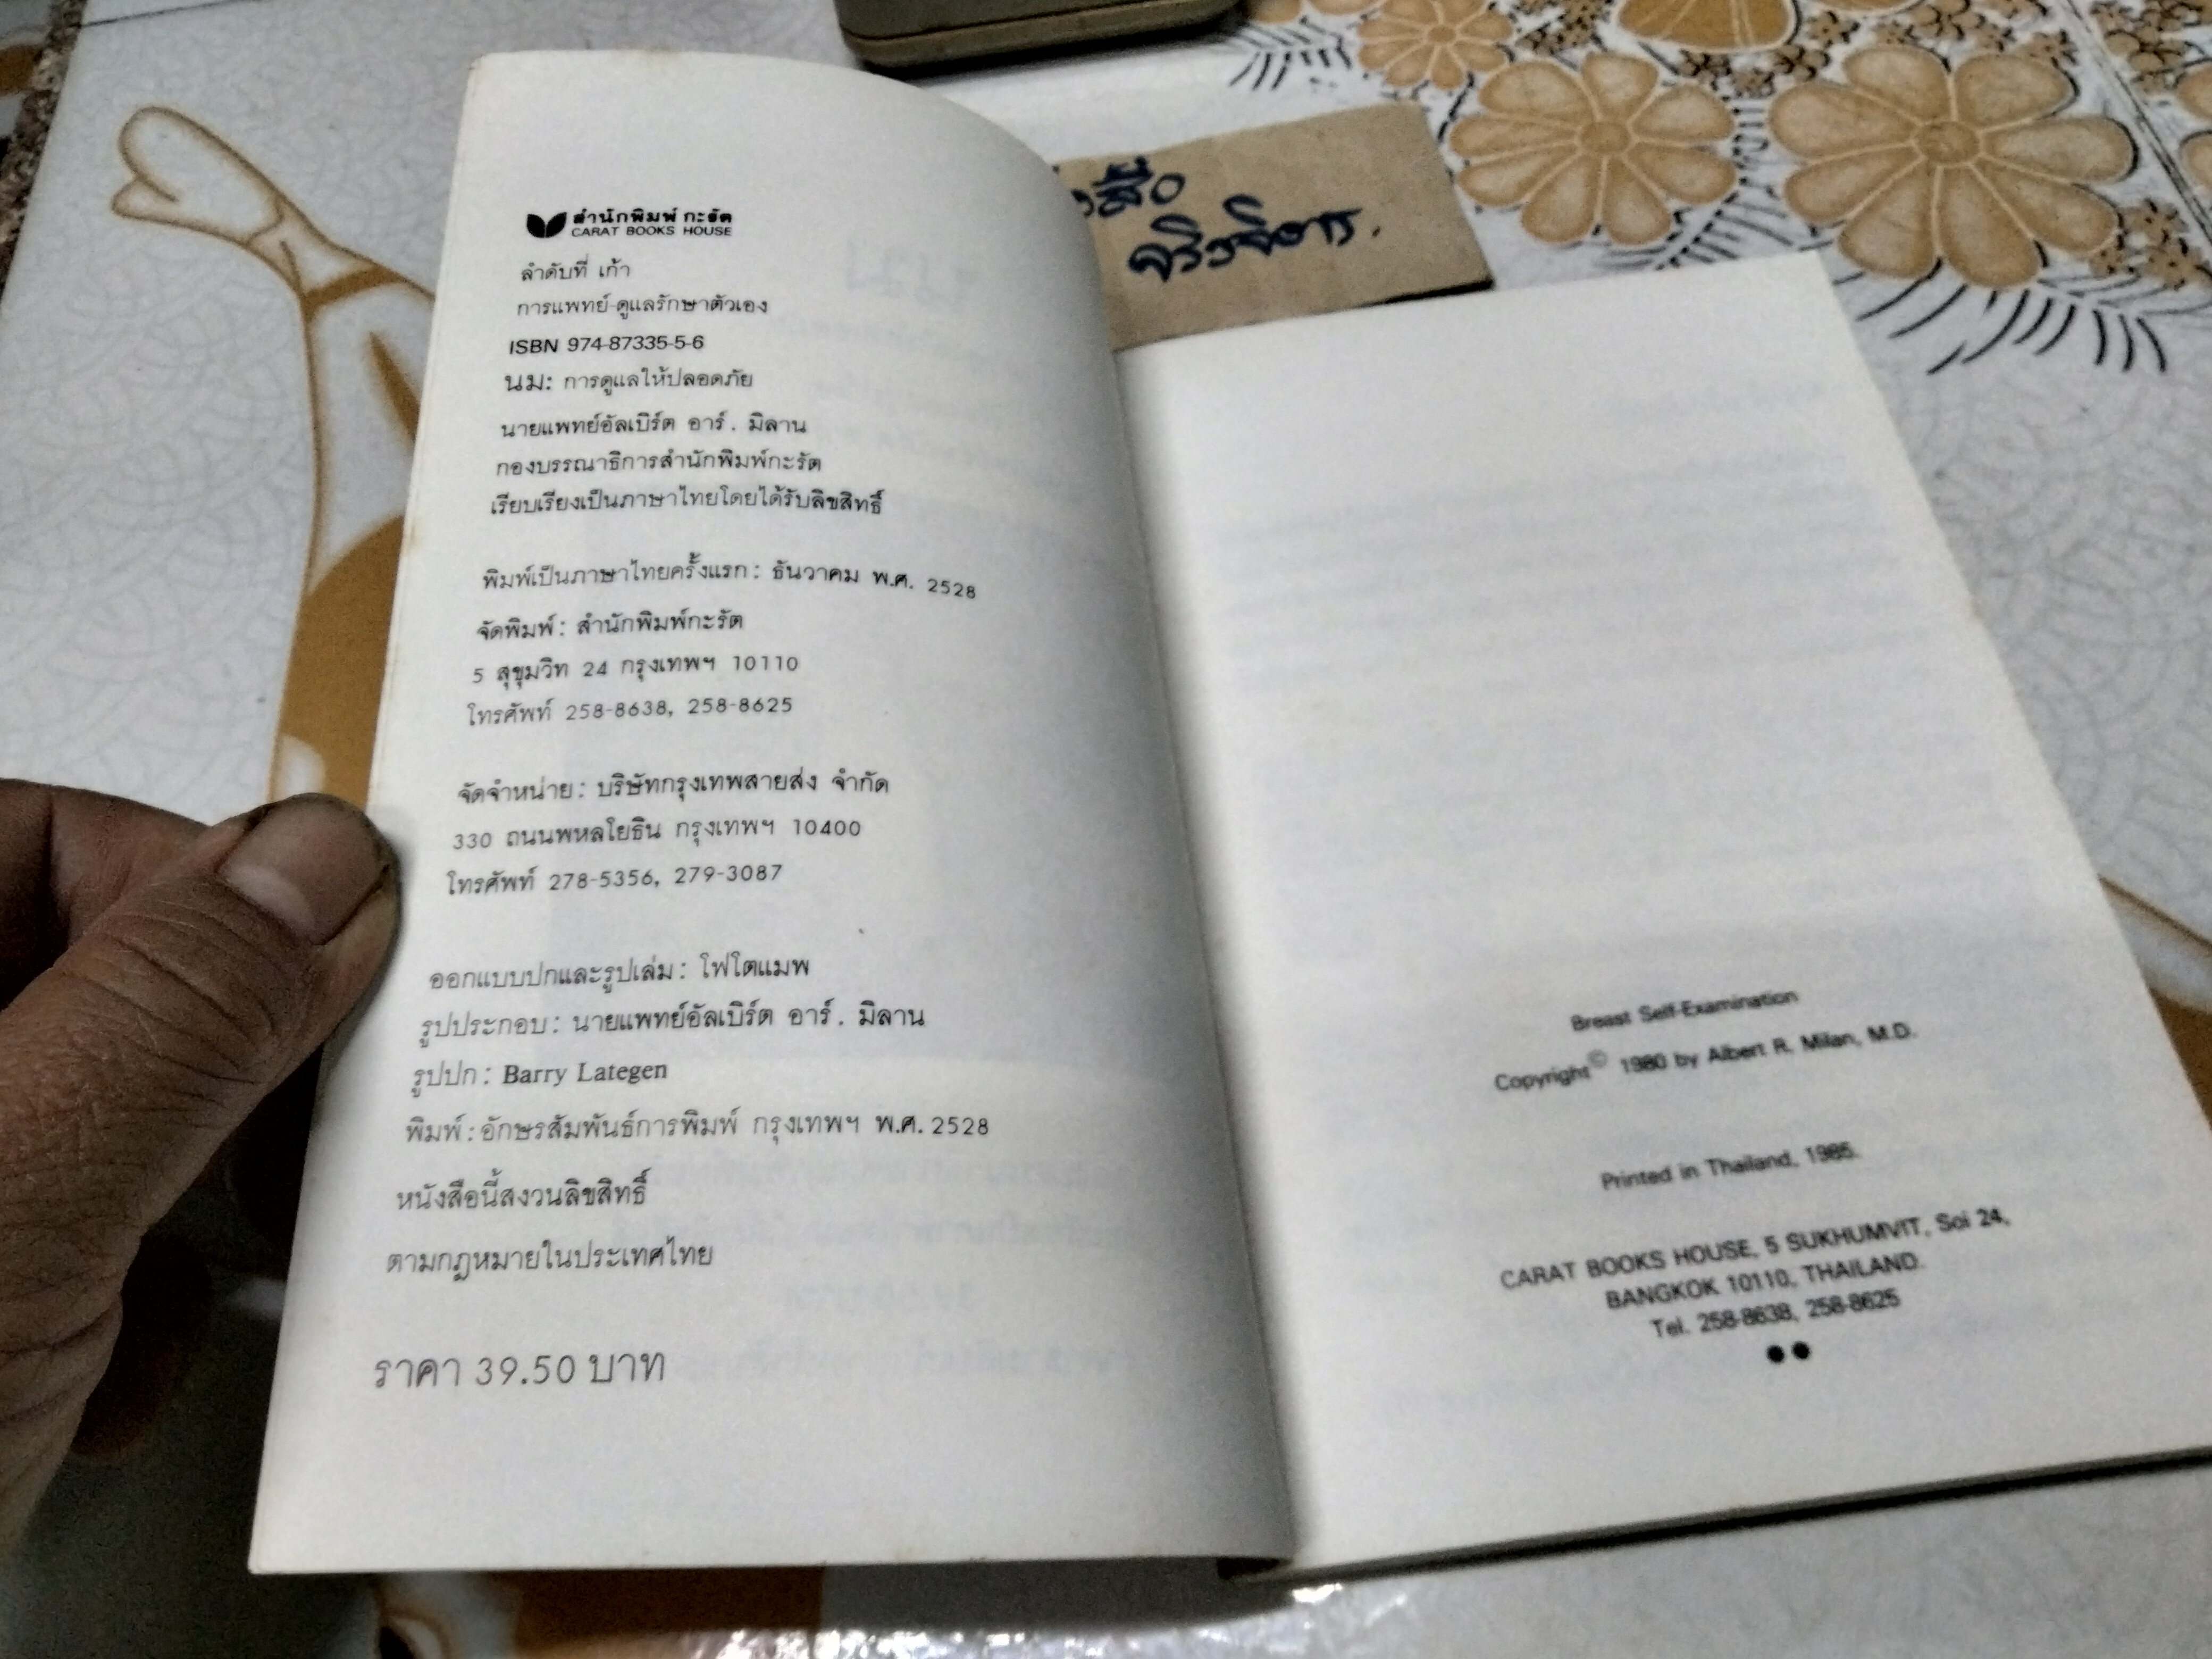 สำนักพิมพ์ กะรัต
CARAT BOOKS HOUSE
ลำดับที่ เก้า
การแพทย์-ดูแลรักษาตัวเอง
ISBN 974-87335-5-6
นม: การดูแลให้ปลอดภัย
นายแพทย์อัลเบิร์ต อาร์. มิลาน
กองบรรณาธิการสำนักพิมพ์กะรัต
เรียบเรียงเป็นภาษาไทยโดยได้รับลิขสิทธิ์
พิมพ์เป็นภาษาไทยครั้งแรก: ธันวาคม พ.ศ. 2528
จัดพิมพ์: สำนักพิมพ์กะรัต
5 สุขุมวิท 24 กรุงเทพฯ 10110
โทรศัพท์ 258-8638, 258-8625
จัดจำหน่าย: บริษัทกรุงเทพสายส่ง จำกัด
330 ถนนพหลโยธิน กรุงเทพฯ 10400
โทรศัพท์ 278-5356, 279-3087
ออกแบบปกและรูปเล่ม: โฟโตแมพ
รูปประกอบ: นายแพทย์อัลเบิร์ต อาร์. มิลาน
รูปปก: Barry Lategen
พิมพ์: อักษรสัมพันธ์การพิมพ์ กรุงเทพฯ พ.ศ. 2528
หนังสือนี้สงวนลิขสิทธิ์
ตามกฎหมายในประเทศไทย
ราคา 39.50 บาท
Breast Self-Examination
Copyright © 1980 by Albert R. Milan, M.D.
Printed in Thailand, 1985.
CARAT BOOKS HOUSE, 5 SUKHUMVIT, Soi 24,
BANGKOK 10110, THAILAND.
Tel. 258-8638, 258-8625